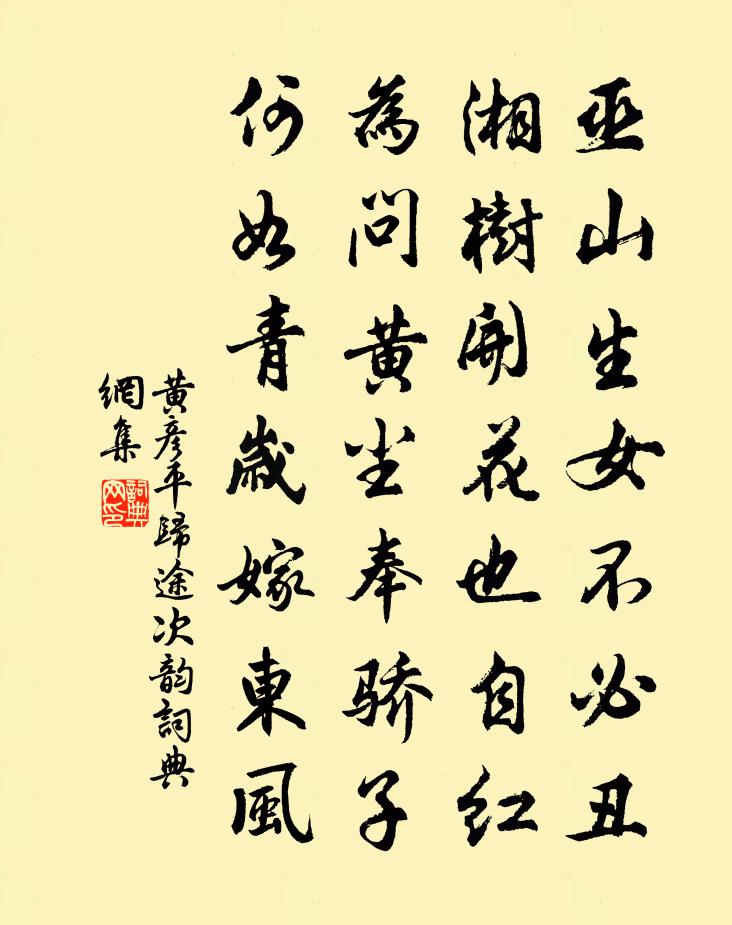 巫山生女不必丑
湘樹開花也自红
為問黄尘奉骄子
何如青歲嫁東風
黄彦平歸途次韵詞典
網集
詞典
网印